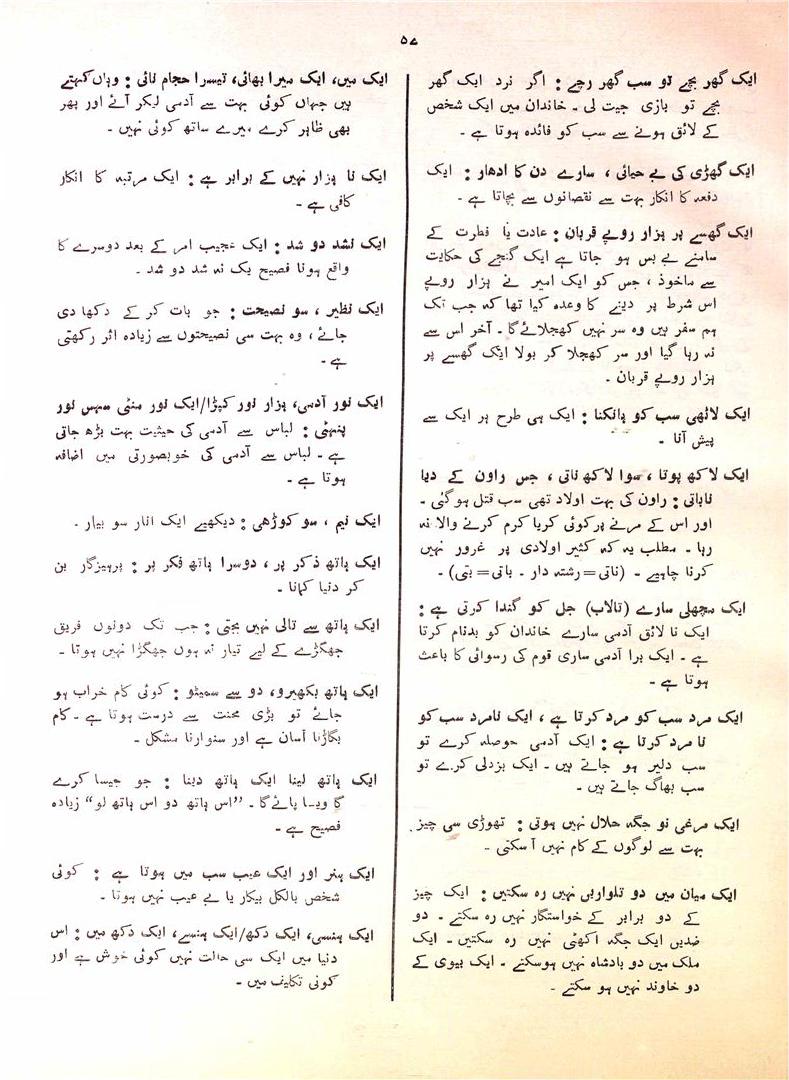 ۵۷
ایک گھر بچے تو سب گھر رچے : اگر نرد ایک گھر
بچے تو بازی جیت لی ۔ خاندان میں ایک شخص
کے لائق ہونے سے سب کو فائدہ ہوتا ہے ۔
ایک گھڑی کی بے حیائی ، سارے دن کا ادھار : ایک
دفعہ کا انکار بہت سے نقصانوں سے بچاتا ہے ۔
ایک گھسے پر ہزار روپے قربان : عادت یا فطرت کے
سامنے بے بس ہو جاتا ہے ایک گنجے کی حکایت
سے ماخوذ ، جس کو ایک امیر نے ہزار روپے
اس شرط پر دینے کا وعدہ کیا تھا کہ جب تک
ہم سفر ہیں وہ سر نہیں کھجلائے گا ۔ آخر اس سے
نہ رہا گیا اور سر کھجلا کر بولا ایک گھسے پر
ہزار روپے قربان ۔
ایک لاٹھی سب کو ہانکنا : ایک ہی طرح ہر ایک سے
پیش آنا ۔
ایک لاکھ پوتا ، سوا لاکھ ناتی ، جس راون کے دیا
ناباتی : راون کی بہت اولاد تھی سب قتل ہو گئی ۔
اور اس کے مرنے پر کوئی کریا کرم کرنے والا نہ
رہا ۔ مطلب یہ کہ کثیر اولادی پر غرور نہیں
کرنا چاہیے ۔ (ناتی= رشتہ دار ۔ باتی= بتی) ۔
ایک مچھلی سارے (تالاب) جل کو گندا کرتی ہے :
ایک نا لائق آدمی سارے خاندان کو بدنام کرتا
ہے ۔ ایک برا آدمی ساری قوم کی رسوائی کا باعث
ہوتا ہے ۔
ایک مرد سب کو مرد کرتا ہے ، ایک نامرد سب کو
نا مرد کرتا ہے : ایک آدمی حوصلہ کرے تو
سب دلیر ہو جاتے ہیں ۔ ایک بزدلی کرے تو
سب بھاگ جاتے ہیں ۔
ایک مرغی نو جگہ حلال نہیں ہوتی : تھوڑی سی چیز
بہت سے لوگوں کے کام نہیں آ سکتی ۔
ایک میان میں دو تلواریں نہیں رہ سکتیں : ایک چیز
کے دو برابر کے خواستگار نہیں رہ سکتے ۔ دو
ضدیں ایک جگہ اکھٹی نہیں رہ سکتیں ۔ ایک
ملک میں دو بادشاہ نہیں ہوسکتے ۔ ایک بیوی کے
دو خاوند نہیں ہو سکتے ۔
ایک میں، ایک میرا بھائی، تیسرا حجام نائی : وہاں کہتے
ہیں جہاں کوئی بہت سے آدمی لیکر آئے اور پھر
بھی ظاہر کرے ، میرے ساتھ کوئی نہیں ۔
ایک نا ہزار نہیں کے برابر ہے : ایک مرتبہ کا انکار
کافی ہے ۔
ایک نشد دو شد : ایک عجیب امر کے بعد دوسرے کا
واقع ہونا فصیح یک نہ شد دو شد ۔
ایک نظیر ، سو نصیحت : جو بات کر کے دکھا دی
جائے ، وہ بہت سی نصیحتوں سے زیادہ اثر رکھتی
ہے ۔
ایک نور آدمی، ہزار نور کپڑا/ایک نور منئی سہس نور
پنہئی : لباس سے آدمی کی حیثیت بہت بڑھ جاتی
ہے ۔ لباس سے آدمی کی خوبصورتی میں اضافہ
ہوتا ہے ۔
ایک نیم ، سو کوڑھی : دیکھیے ایک انار سو بیمار ۔
ایک ہاتھ ذکر پر ، دوسرا ہاتھ فکر پر : پرہیزگار بن
کر دنیا کمانا ۔
ایک ہاتھ سے تالی نہیں بجتی : جب تک دونوں فریق
جھگڑے کے لیے تیار نہ ہوں جھگڑا نہیں ہوتا ۔
ایک ہاتھ بکھیرو، دو سے سمیٹو : کوئی کام خراب ہو
جائے تو بڑی محنت سے درست ہوتا ہے ۔ کام
بگاڑنا آسان ہے اور سنوارنا مشکل ۔
ایک ہاتھ لینا ایک ہاتھ دینا : جو جیسا کرے
گا ویسا پائے گا ۔ ”اس ہاتھ دو اس ہاتھ لو“ زیادہ
فصیح ہے ۔
ایک ہنر اور ایک عیب سب میں ہوتا ہے : کوئی
شخص بالکل بیکار یا بے عیب نہیں ہوتا ۔
ایک ہنسی، ایک دکھ/ایک ہنسے، ایک دکھ میں : اس
دنیا میں ایک سی حالت نہیں کوئی خوش ہے اور
کوئی تکلیف میں ۔